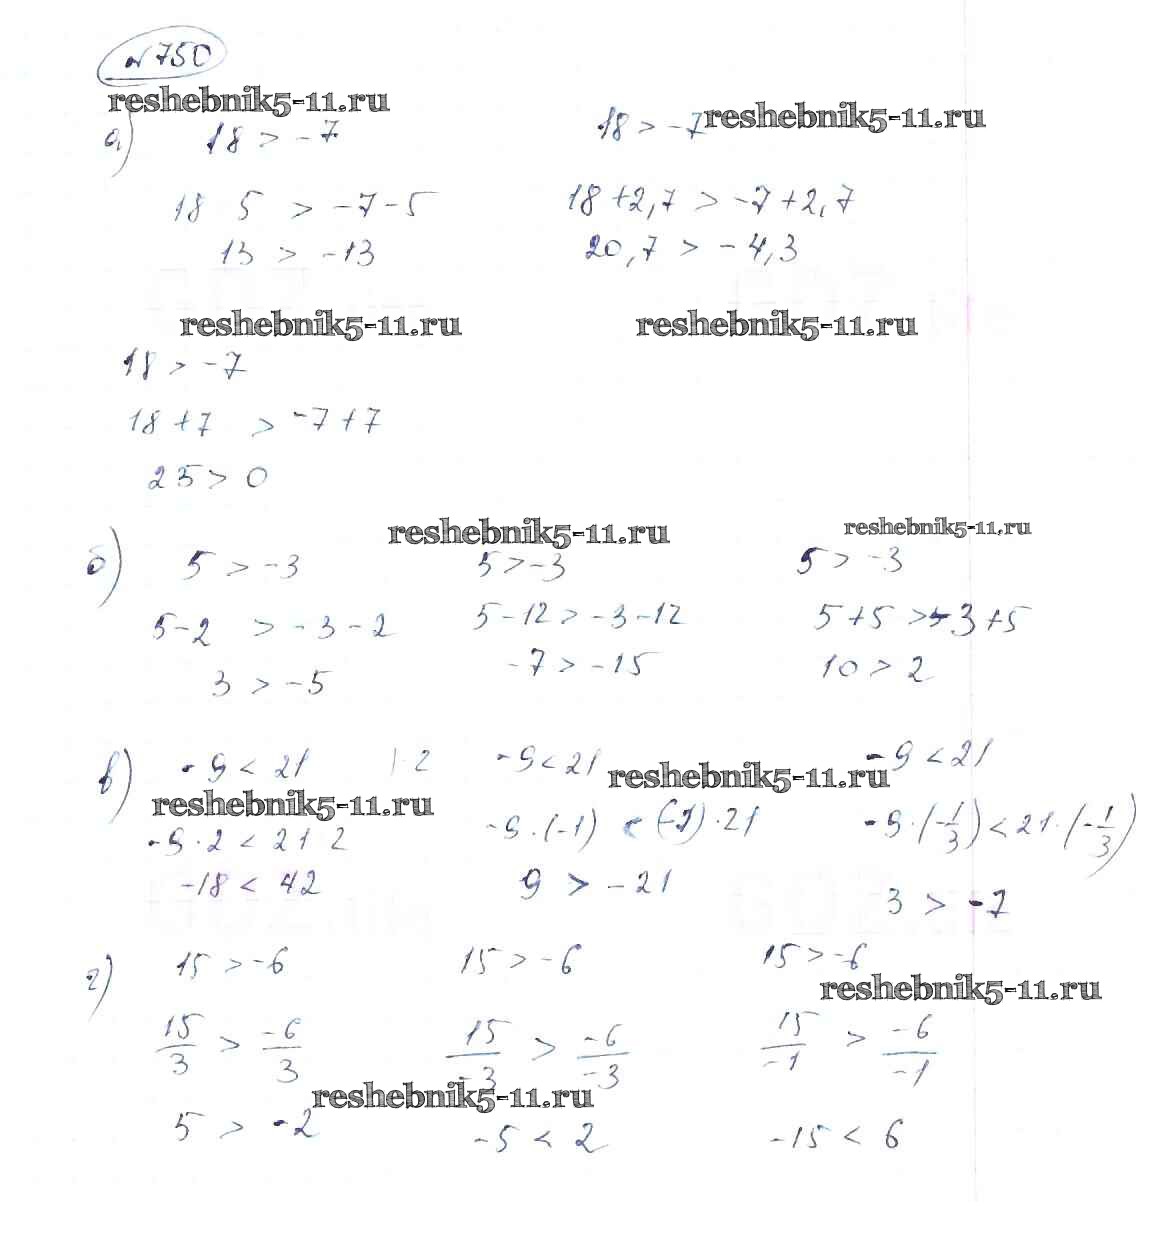 № 750
reshebnik5-11.ru
а) 18 > -7 18 > -7 reshebnik5-11.ru
18 5 > -7-5 18+2,7 > -7+2,7
13 > -13 20,7 > -4,3
reshebnik5-11.ru reshebnik5-11.ru
18 > -7
18+7 > -7+7
25 > 0
reshebnik5-11.ru reshebnik5-11.ru
б) 5 > -3 5 > -3 5 > -3
5-2 > -3-2 5-12 > -3-12 5+5 > -3+5
3 > -5 -7 > -15 10 > 2
в) -9 < 21 | 2 -9 < 21 reshebnik5-11.ru -9 < 21
reshebnik5-11.ru
-9·2 < 21 2 -9·(-1) < (-1)·21 -9·(-1/3) < 21·(-1/3)
-18 < 42 9 > -21 3 > -7
г) 15 > -6 15 > -6 15 > -6
reshebnik5-11.ru
15/3 > -6/3 15/-3 > -6/-3 15/-1 > -6/-1
reshebnik5-11.ru
5 > -2 -5 < 2 -15 < 6